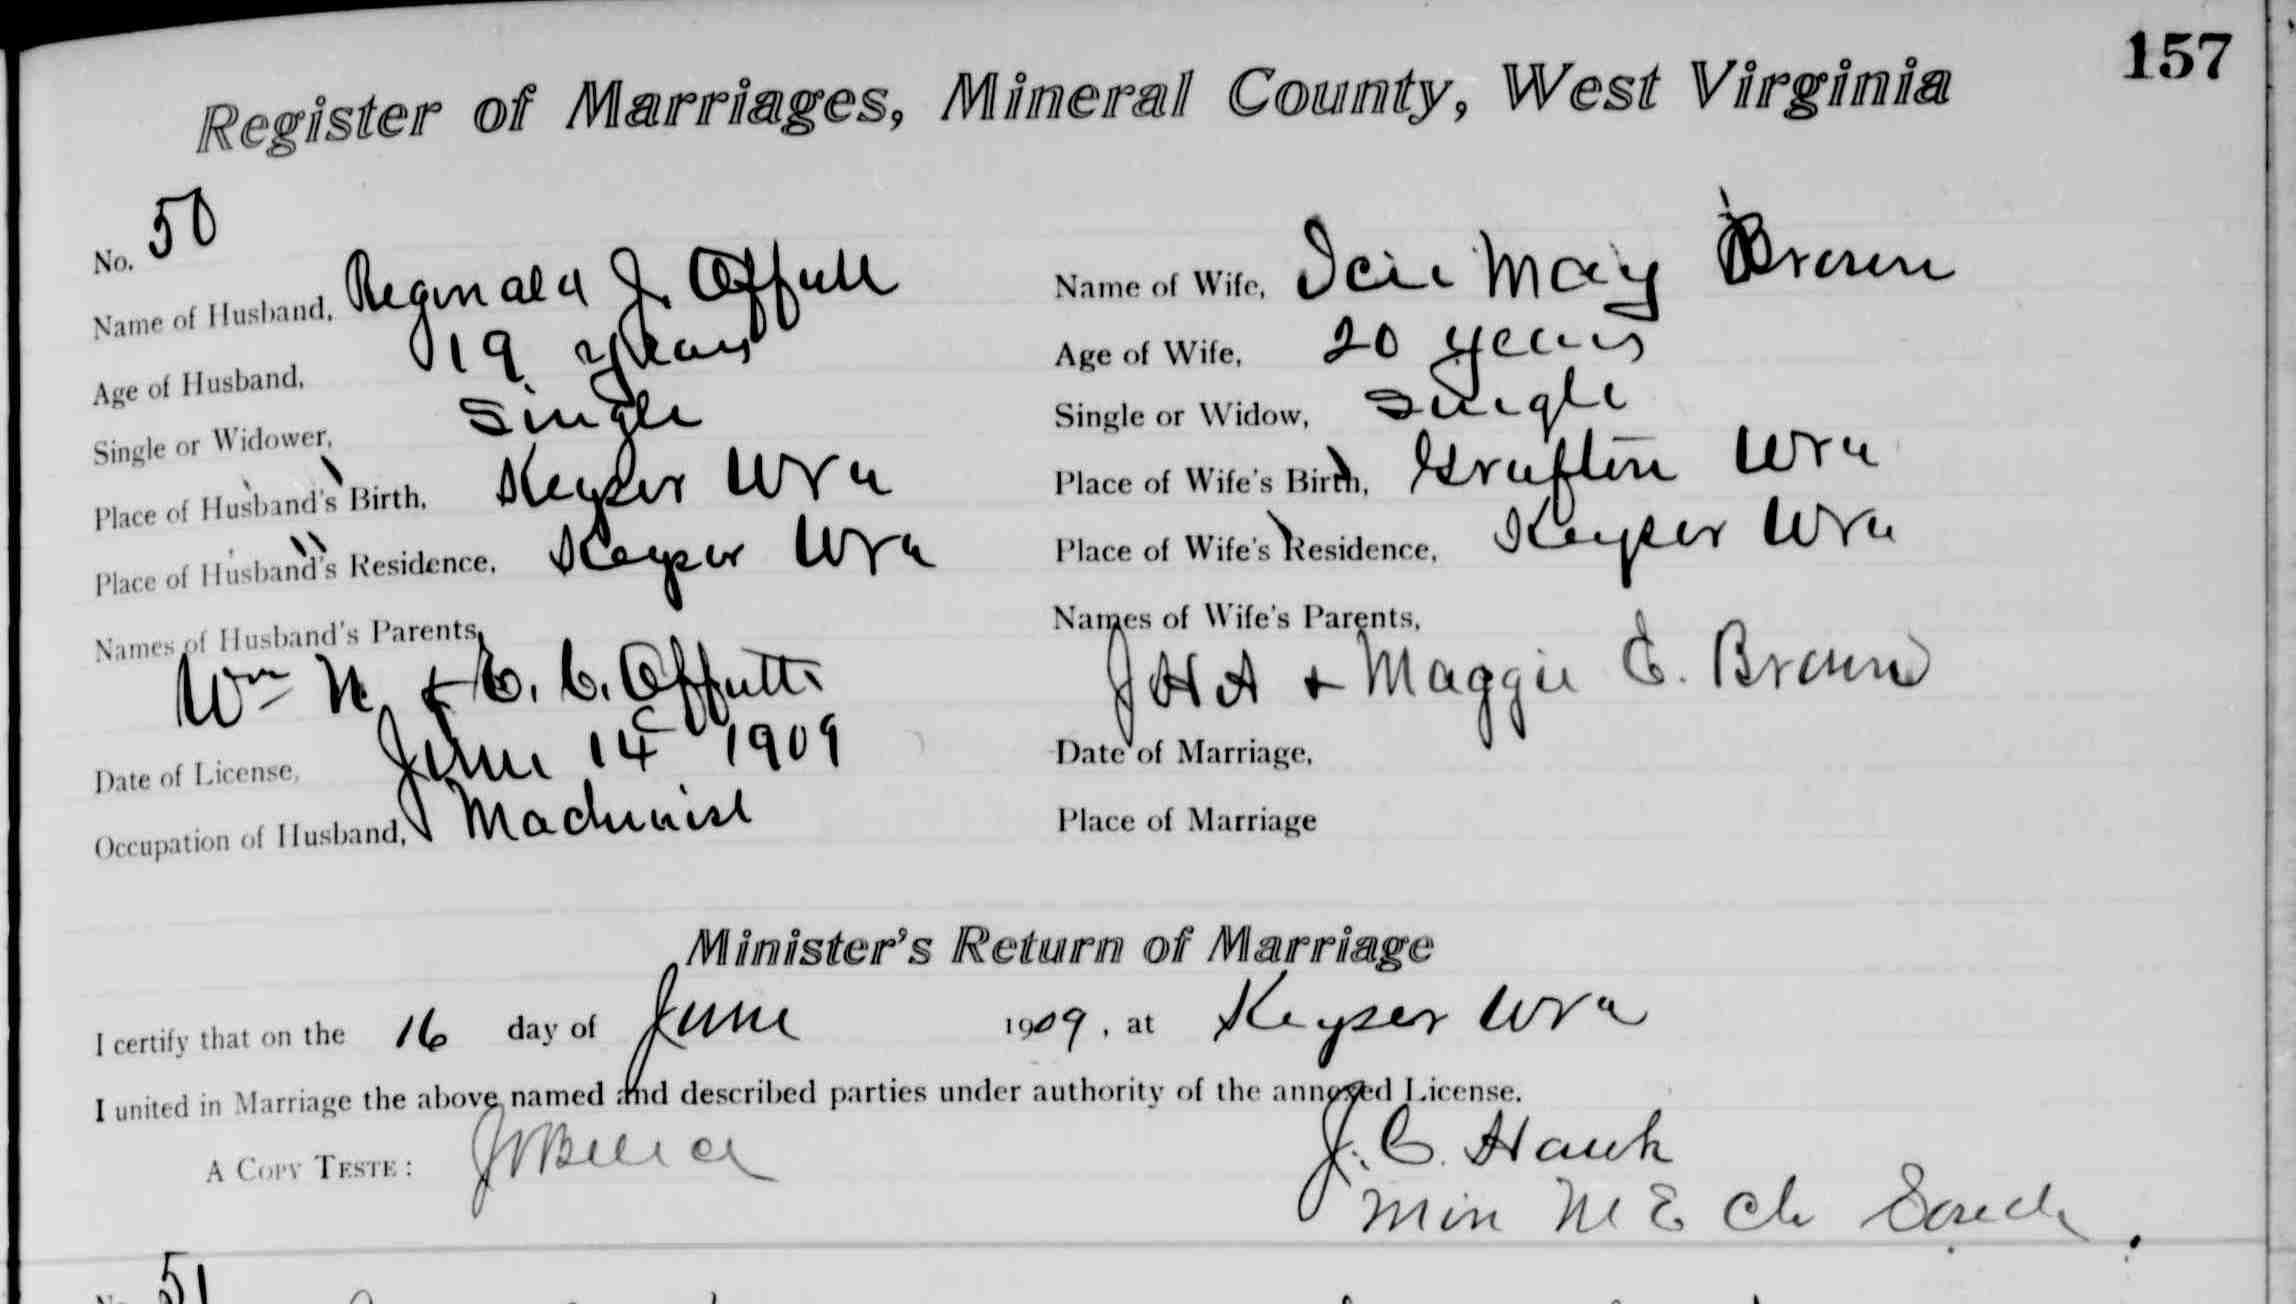 157
Register of Marriages, Mineral County, West Virginia
No. 50
Name of Husband, Reginald J. Offutt
Age of Husband, 19 years
Single or Widower, Single
Place of Husband's Birth, Keyser W Va
Place of Husband's Residence, Keyser W Va
Names of Husband's Parents,
Wm N. & E. C. Offutt
Date of License, June 14 1909
Occupation of Husband, Machinist
Name of Wife, May Brown
Age of Wife, 20 years
Single or Widow, Single
Place of Wife's Birth, Grafton W Va
Place of Wife's Residence, Keyser W Va
Names of Wife's Parents,
J H A & Maggie E. Brown
Date of Marriage,
Place of Marriage
Minister's Return of Marriage
I certify that on the 16 day of June 1909, at Keyser W Va
I united in Marriage the above named and described parties under authority of the annexed License.
A Copy Teste:
J. C. Hawk
Min M E Ch South
51